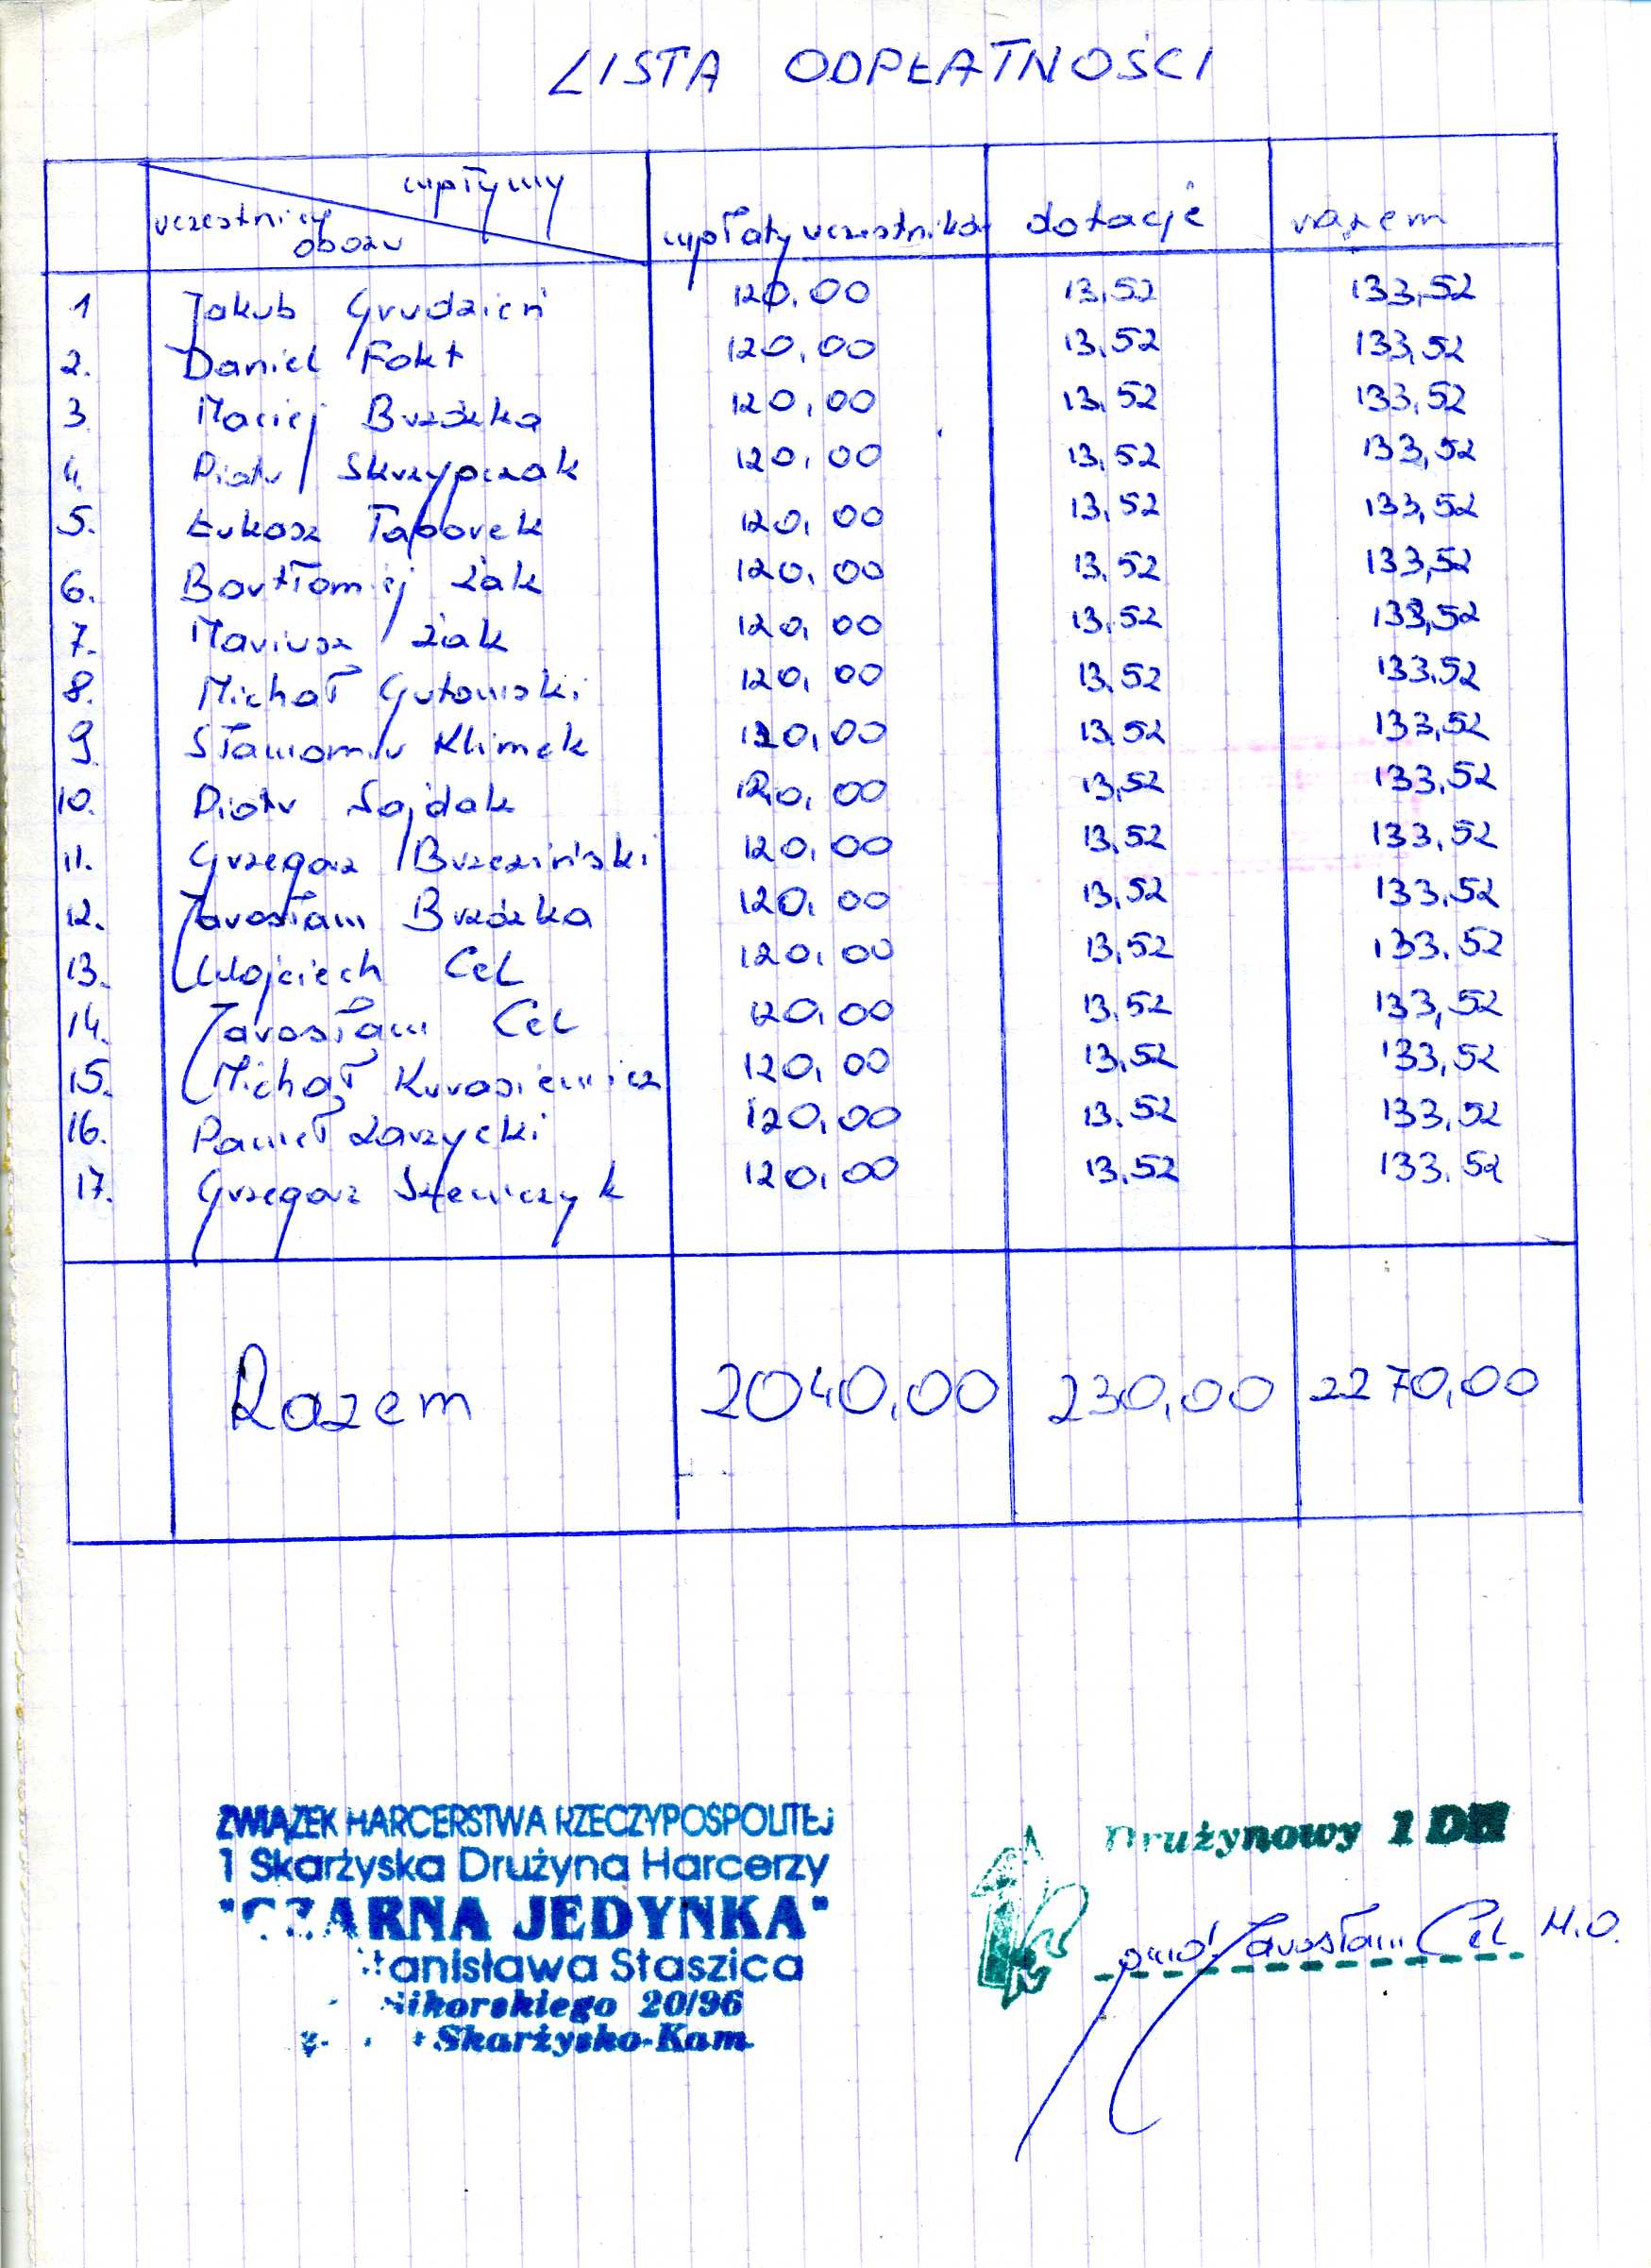 LISTA ODPŁATNOŚCI
wpływy
uczestnicy
obozu
wpłaty uczestników dotacje razem
1 Jakub Grudzień 120,00 13,52 133,52
2. Daniel Fokt 120,00 13,52 133,52
3. Maciej Brzózka 120,00 13,52 133,52
4. Piotr Skrzypczak 120,00 13,52 133,52
5. Łukasz Taborek 120,00 13,52 133,52
6. Bartłomiej Żak 120,00 13,52 133,52
7. Mariusz Żak 120,00 13,52 133,52
8. Michał Gutowski 120,00 13,52 133,52
9. Sławomir Klimek 120,00 13,52 133,52
10. Piotr Sajdak 120,00 13,52 133,52
11. Grzegorz Brzeziński 120,00 13,52 133,52
12. Jarosław Brzózka 120,00 13,52 133,52
13. Wojciech Cel 120,00 13,52 133,52
14. Jarosław Cel 120,00 13,52 133,52
15. Michał Kurasiewicz 120,00 13,52 133,52
16. Paweł Zarzycki 120,00 13,52 133,52
17. Grzegorz Szewczyk 120,00 13,52 133,52
Razem 2040,00 230,00 2270,00
ZWIĄZEK HARCERSTWA RZECZYPOSPOLITEJ
1 Skarżyska Drużyna Harcerzy
"CZARNA JEDYNKA"
Stanisława Staszica
Sikorskiego 20/96
Skarżysko-Kam.
Drużynowy 1 DH
Jarosław Cel H.O.